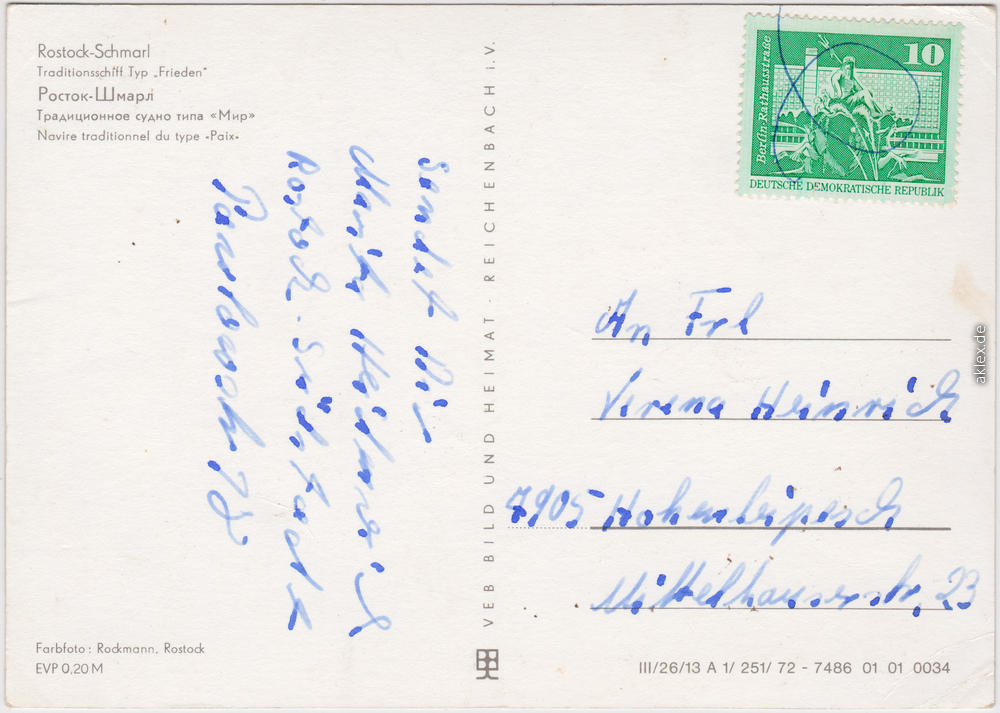 Rostock-Schmarl
Traditionsschiff Typ „Frieden"
Росток-Шмарл
Традиционное судно типа «Мир»
Navire traditionnel du type «Paix»
Berlin-Rathausstraße
10
DEUTSCHE DEMOKRATISCHE REPUBLIK
Sendet Dir
Heinrich
Rostock-Südstadt
VEB BILD UND HEIMAT · REICHENBACH I. V.
An Frl
Verena Heinrich
7905 Hohenleipisch
Mittelhauserstr. 23
Farbfoto: Rockmann, Rostock
EVP 0,20 M
III/26/13 A 1/ 251/ 72 - 7486 01 01 0034
aklex.de